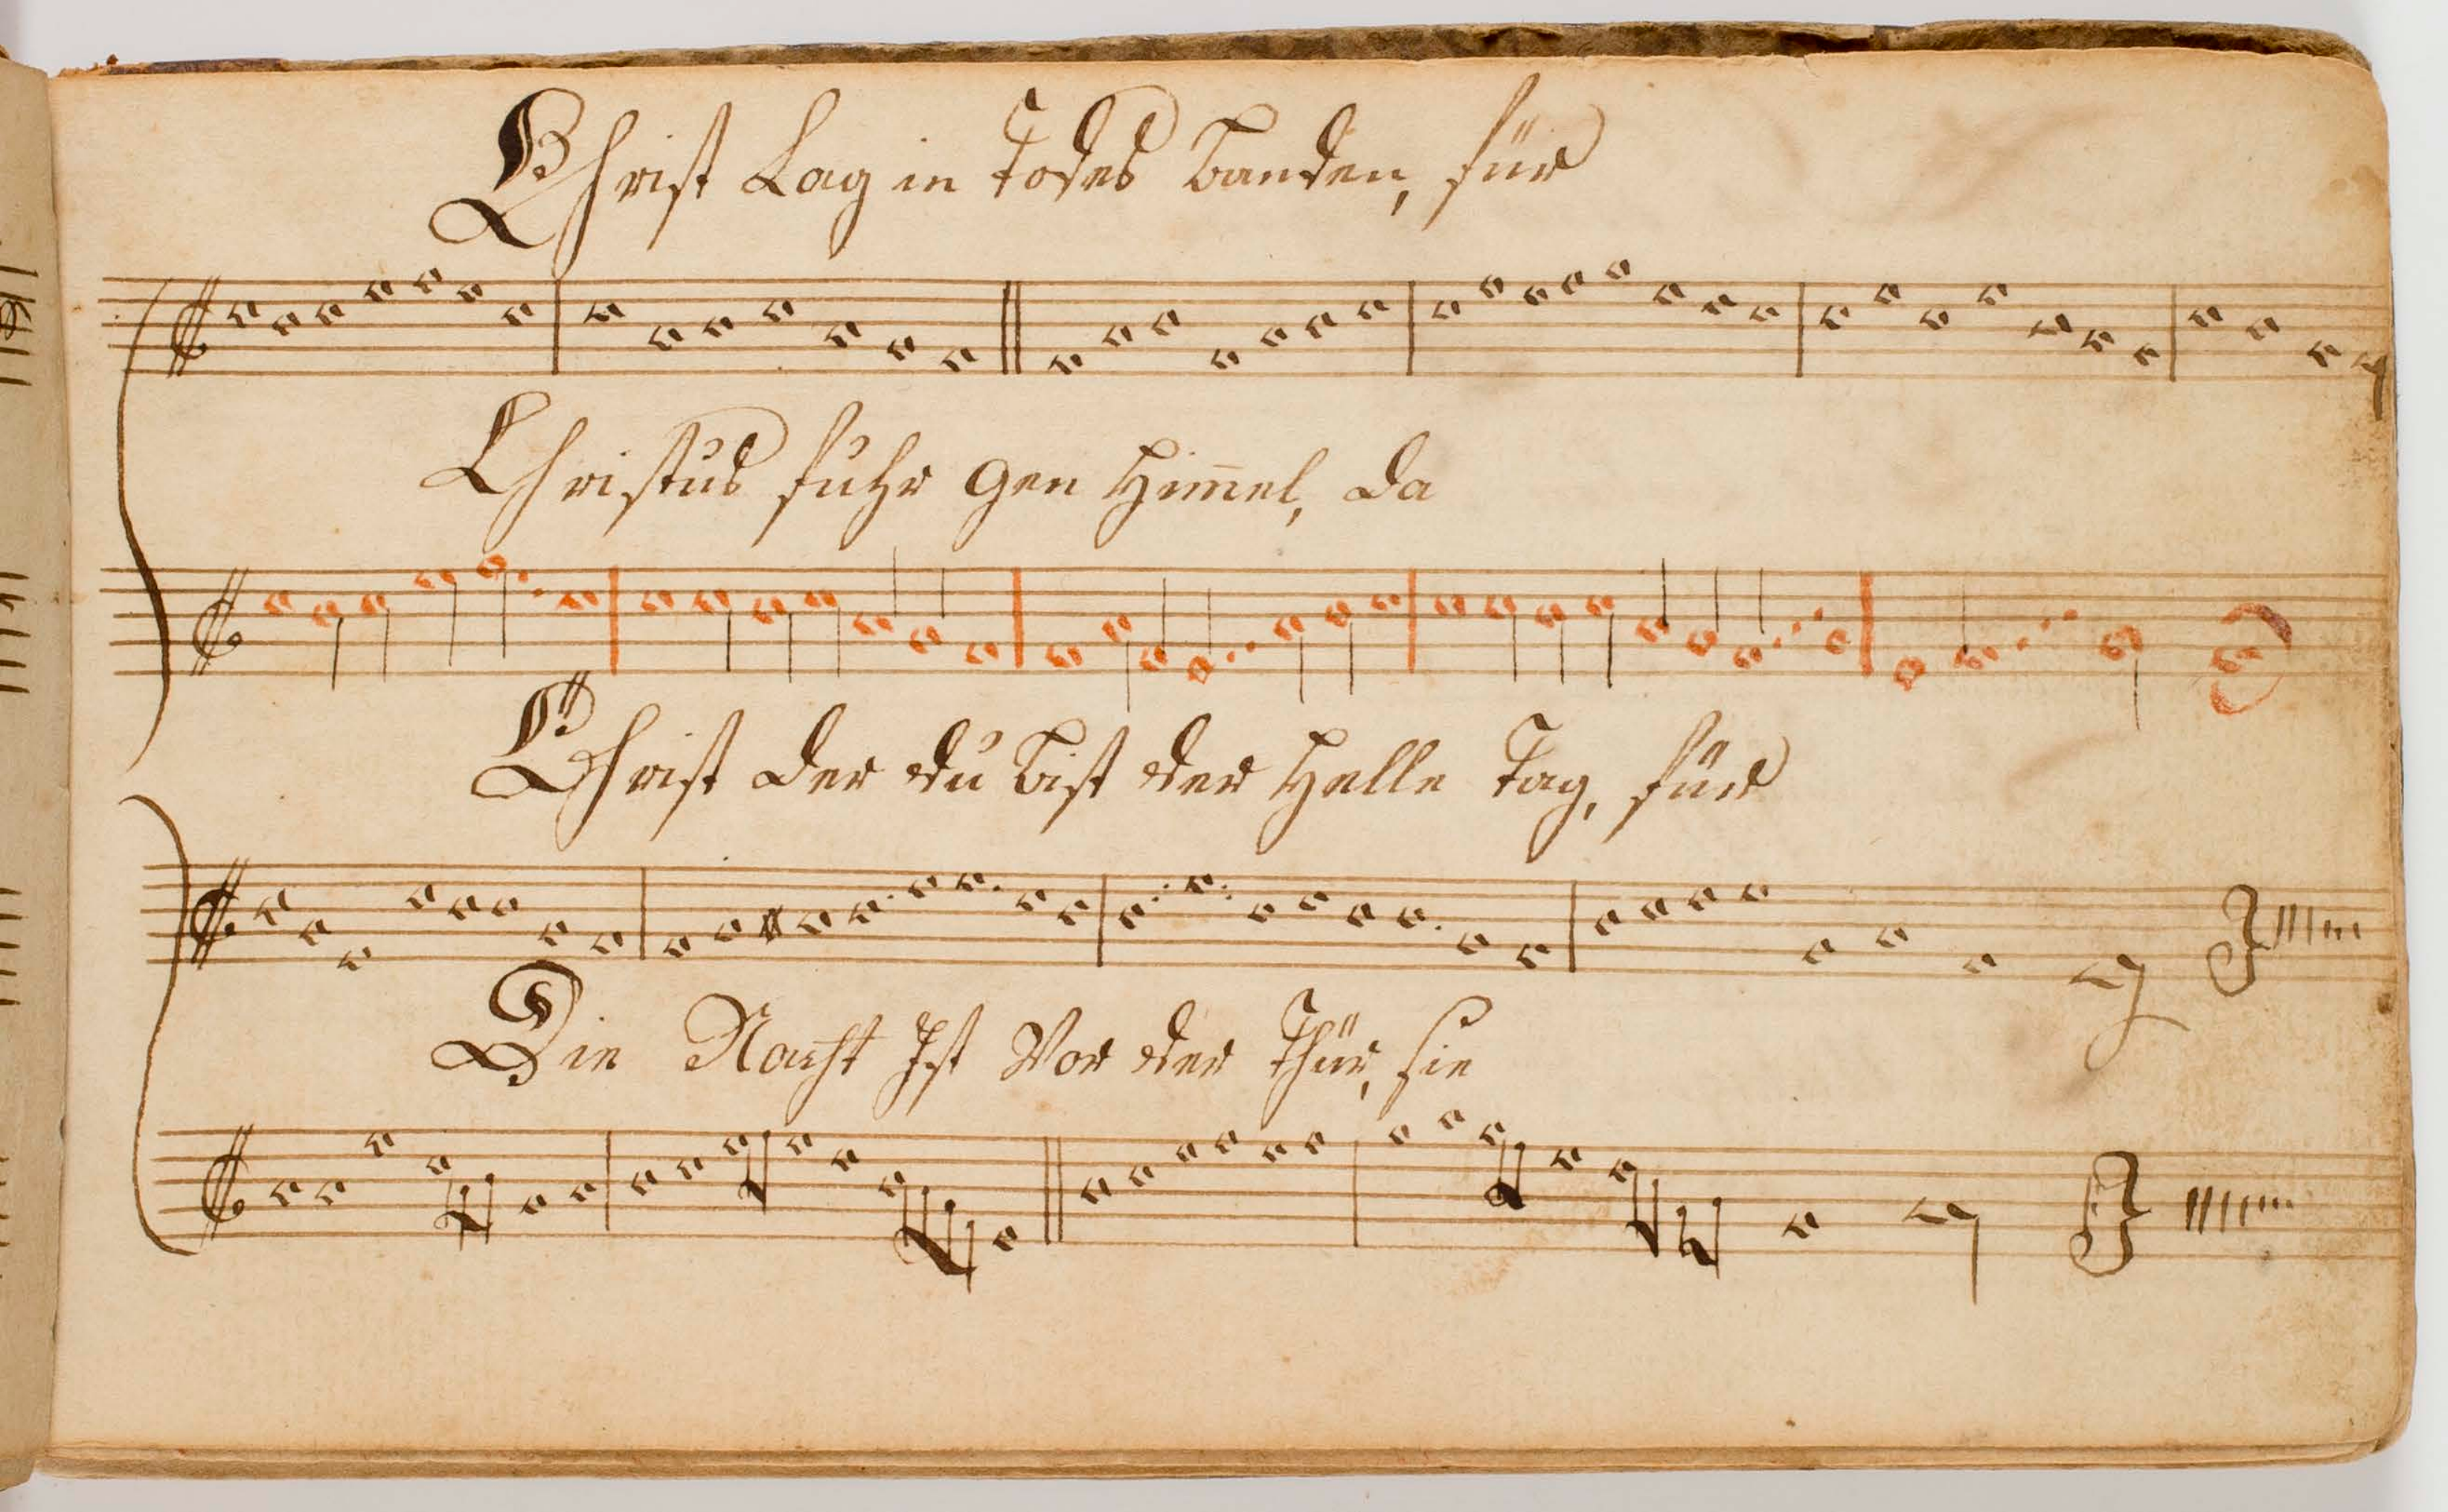 Christ Lag in Todes Banden, für
Christus fuhr gen Him̅el, da
Christ der du bist der Helle Tag, für
Die Nacht Ist Vor der Thür, sie